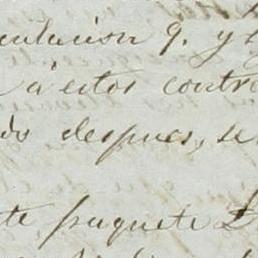 culacion q. y
a estos contr
do despues, se
te paquete